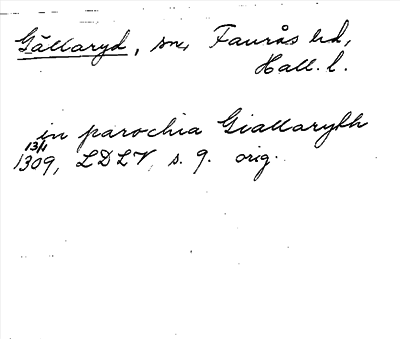 Gällaryd, sn, Faurås hd,
Hall. l.
in parochia Giallarydh
13/1
1309, LDLV, s. 9. orig.